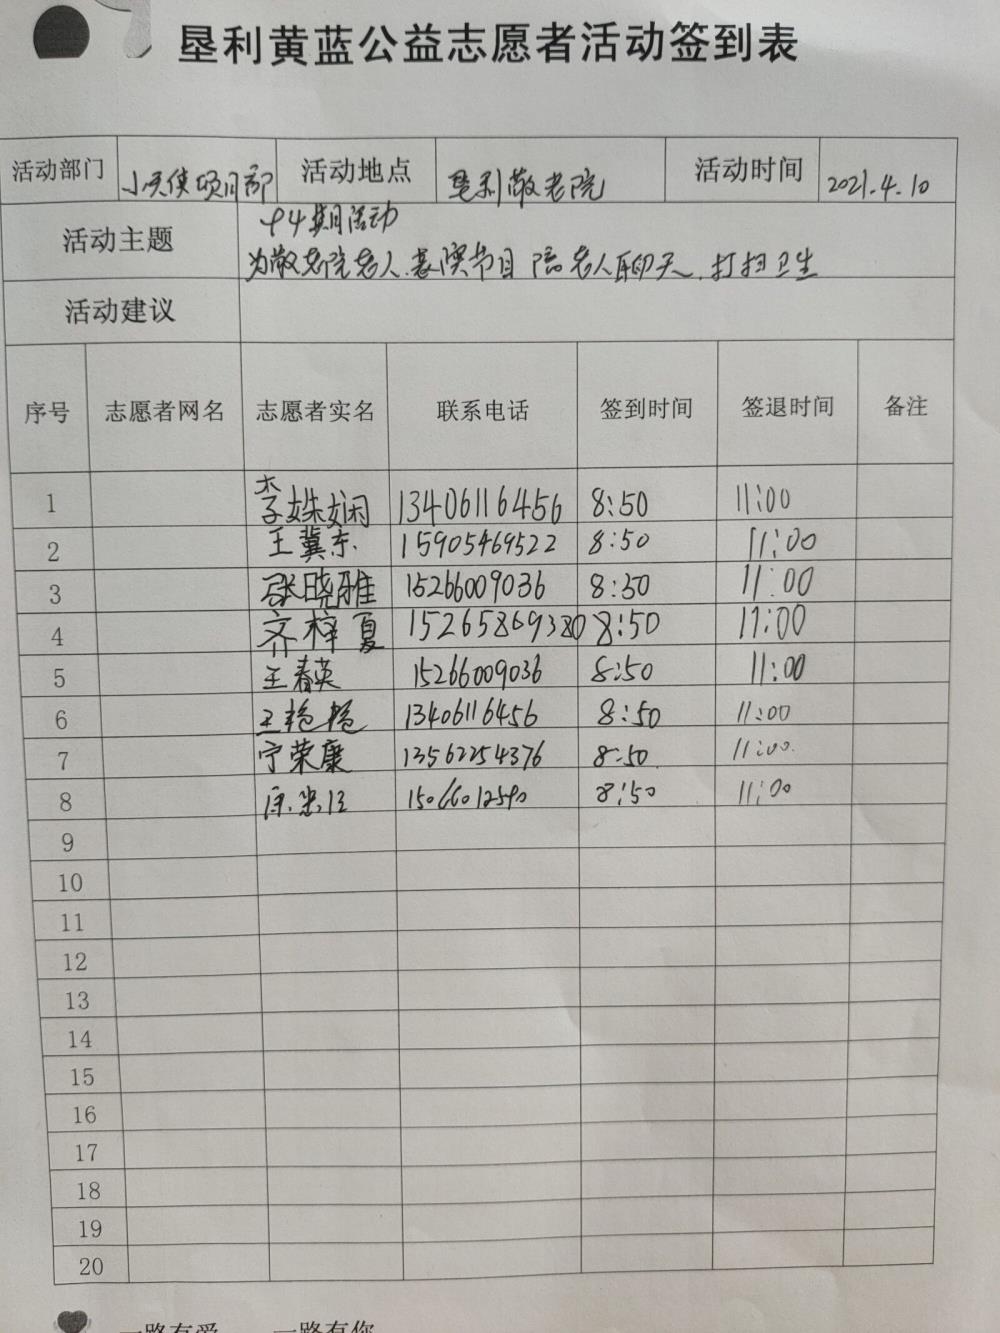 垦利黄蓝公益志愿者活动签到表
活动部门 小天使项目部 活动地点 垦利敬老院 活动时间 2021.4.10
活动主题 94期活动
为敬老院老人.表演节目 陪老人聊天.打扫卫生
活动建议
序号 志愿者网名 志愿者实名 联系电话 签到时间 签退时间 备注
1 李姝娴 13406116456 8:50 11:00
2 王冀东 15905469522 8:50 11:00
3 张晓雅 15266009036 8:50 11:00
4 齐梓夏 15265869380 8:50 11:00
5 王春英 15266009036 8:50 11:00
6 王艳艳 13406116456 8:50 11:00
7 宁荣康 13562254376 8:50 11:00
8 8:50 11:00
9
10
11
12
13
14
15
16
17
18
19
20
一路有爱 一路有你